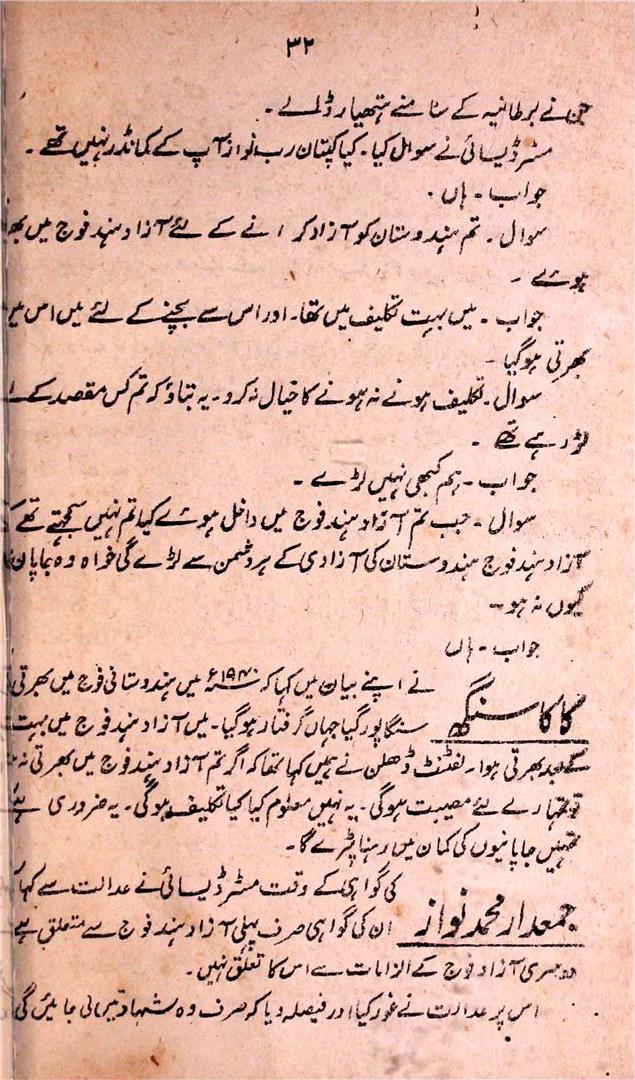 ۳۲
جن نے برطانیہ کے سامنے ہتھیار ڈالے۔
مسٹر ڈیسائی نے سوال کیا۔ کیا کپتان رب نواز آپ کے کمانڈر نہیں تھے۔
جواب۔ ہاں۔
سوال۔ تم ہندوستان کو آزاد کرانے کے لئے آزاد ہند فوج میں
ہوئے۔
جواب۔ میں بہت تکلیف میں تھا۔ اور اس سے بچنے کے لئے میں اس میں
بھرتی ہوگیا۔
سوال۔ تکلیف ہونے نہ ہونے کا خیال نہ کرو۔ یہ بتاؤ کہ تم کس مقصد کے
لڑ رہے تھے۔
جواب۔ ہم کبھی نہیں لڑے۔
سوال۔ جب تم آزاد ہند فوج میں داخل ہوئے کیا تم نہیں سمجھتے تھے
آزاد ہند فوج ہندوستان کی آزادی کے ہر دشمن سے لڑے گی خواہ وہ جاپان
کیوں نہ ہو۔
جواب۔ ہاں
نے اپنے بیان میں کہا کہ ۱۹۴۰ء میں ہندوستانی فوج میں بھرتی
کاکا سنگھ سنگاپور گیا جہاں گرفتار ہوگیا۔ میں آزاد ہند فوج میں بہت
بعد بھرتی ہوا۔ لفٹنٹ ڈھلن نے ہمیں کہا تھا کہ اگر تم آزاد ہند فوج میں بھرتی نہ
تو تمہارے لئے مصیبت ہوگی۔ یہ نہیں معلوم کیا کیا تکلیف ہوگی۔ یہ ضروری ہے
تمہیں جاپانیوں کی کمان میں رہنا پڑے گا۔
کی گواہی کے وقت مسٹر ڈیسائی نے عدالت سے کہا
جمعدار محمد نواز ان کی گواہی صرف پہلی آزاد ہند فوج سے متعلق ہے
دوسری آزاد فوج کے الزامات سے اس کا تعلق نہیں۔
اس پر عدالت نے غور کیا اور فیصلہ دیا کہ صرف وہ شہادتیں لی جائیں گی